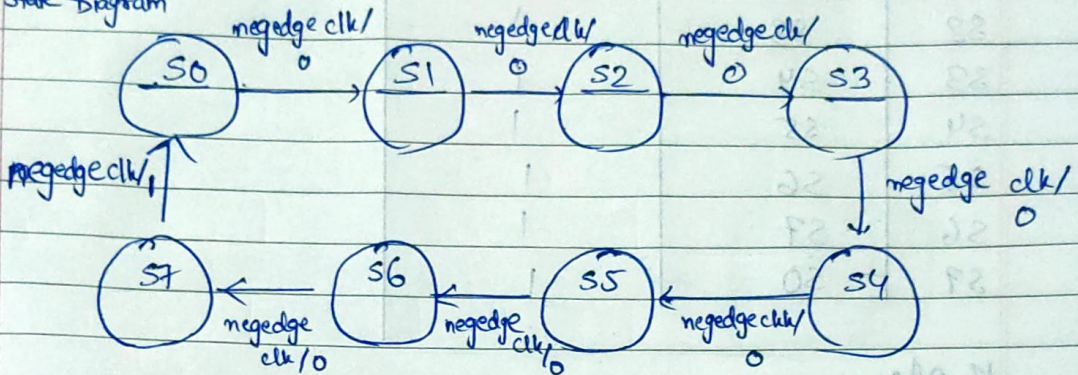 State Diagram
negedge clk/
0
negedge clk/
0
negedge clk/
0
S0
S1
S2
S3
negedge clk/1
negedge clk/
0
S7
S6
S5
S4
negedge
clk/0
negedge
clk/0
negedge clk/
0